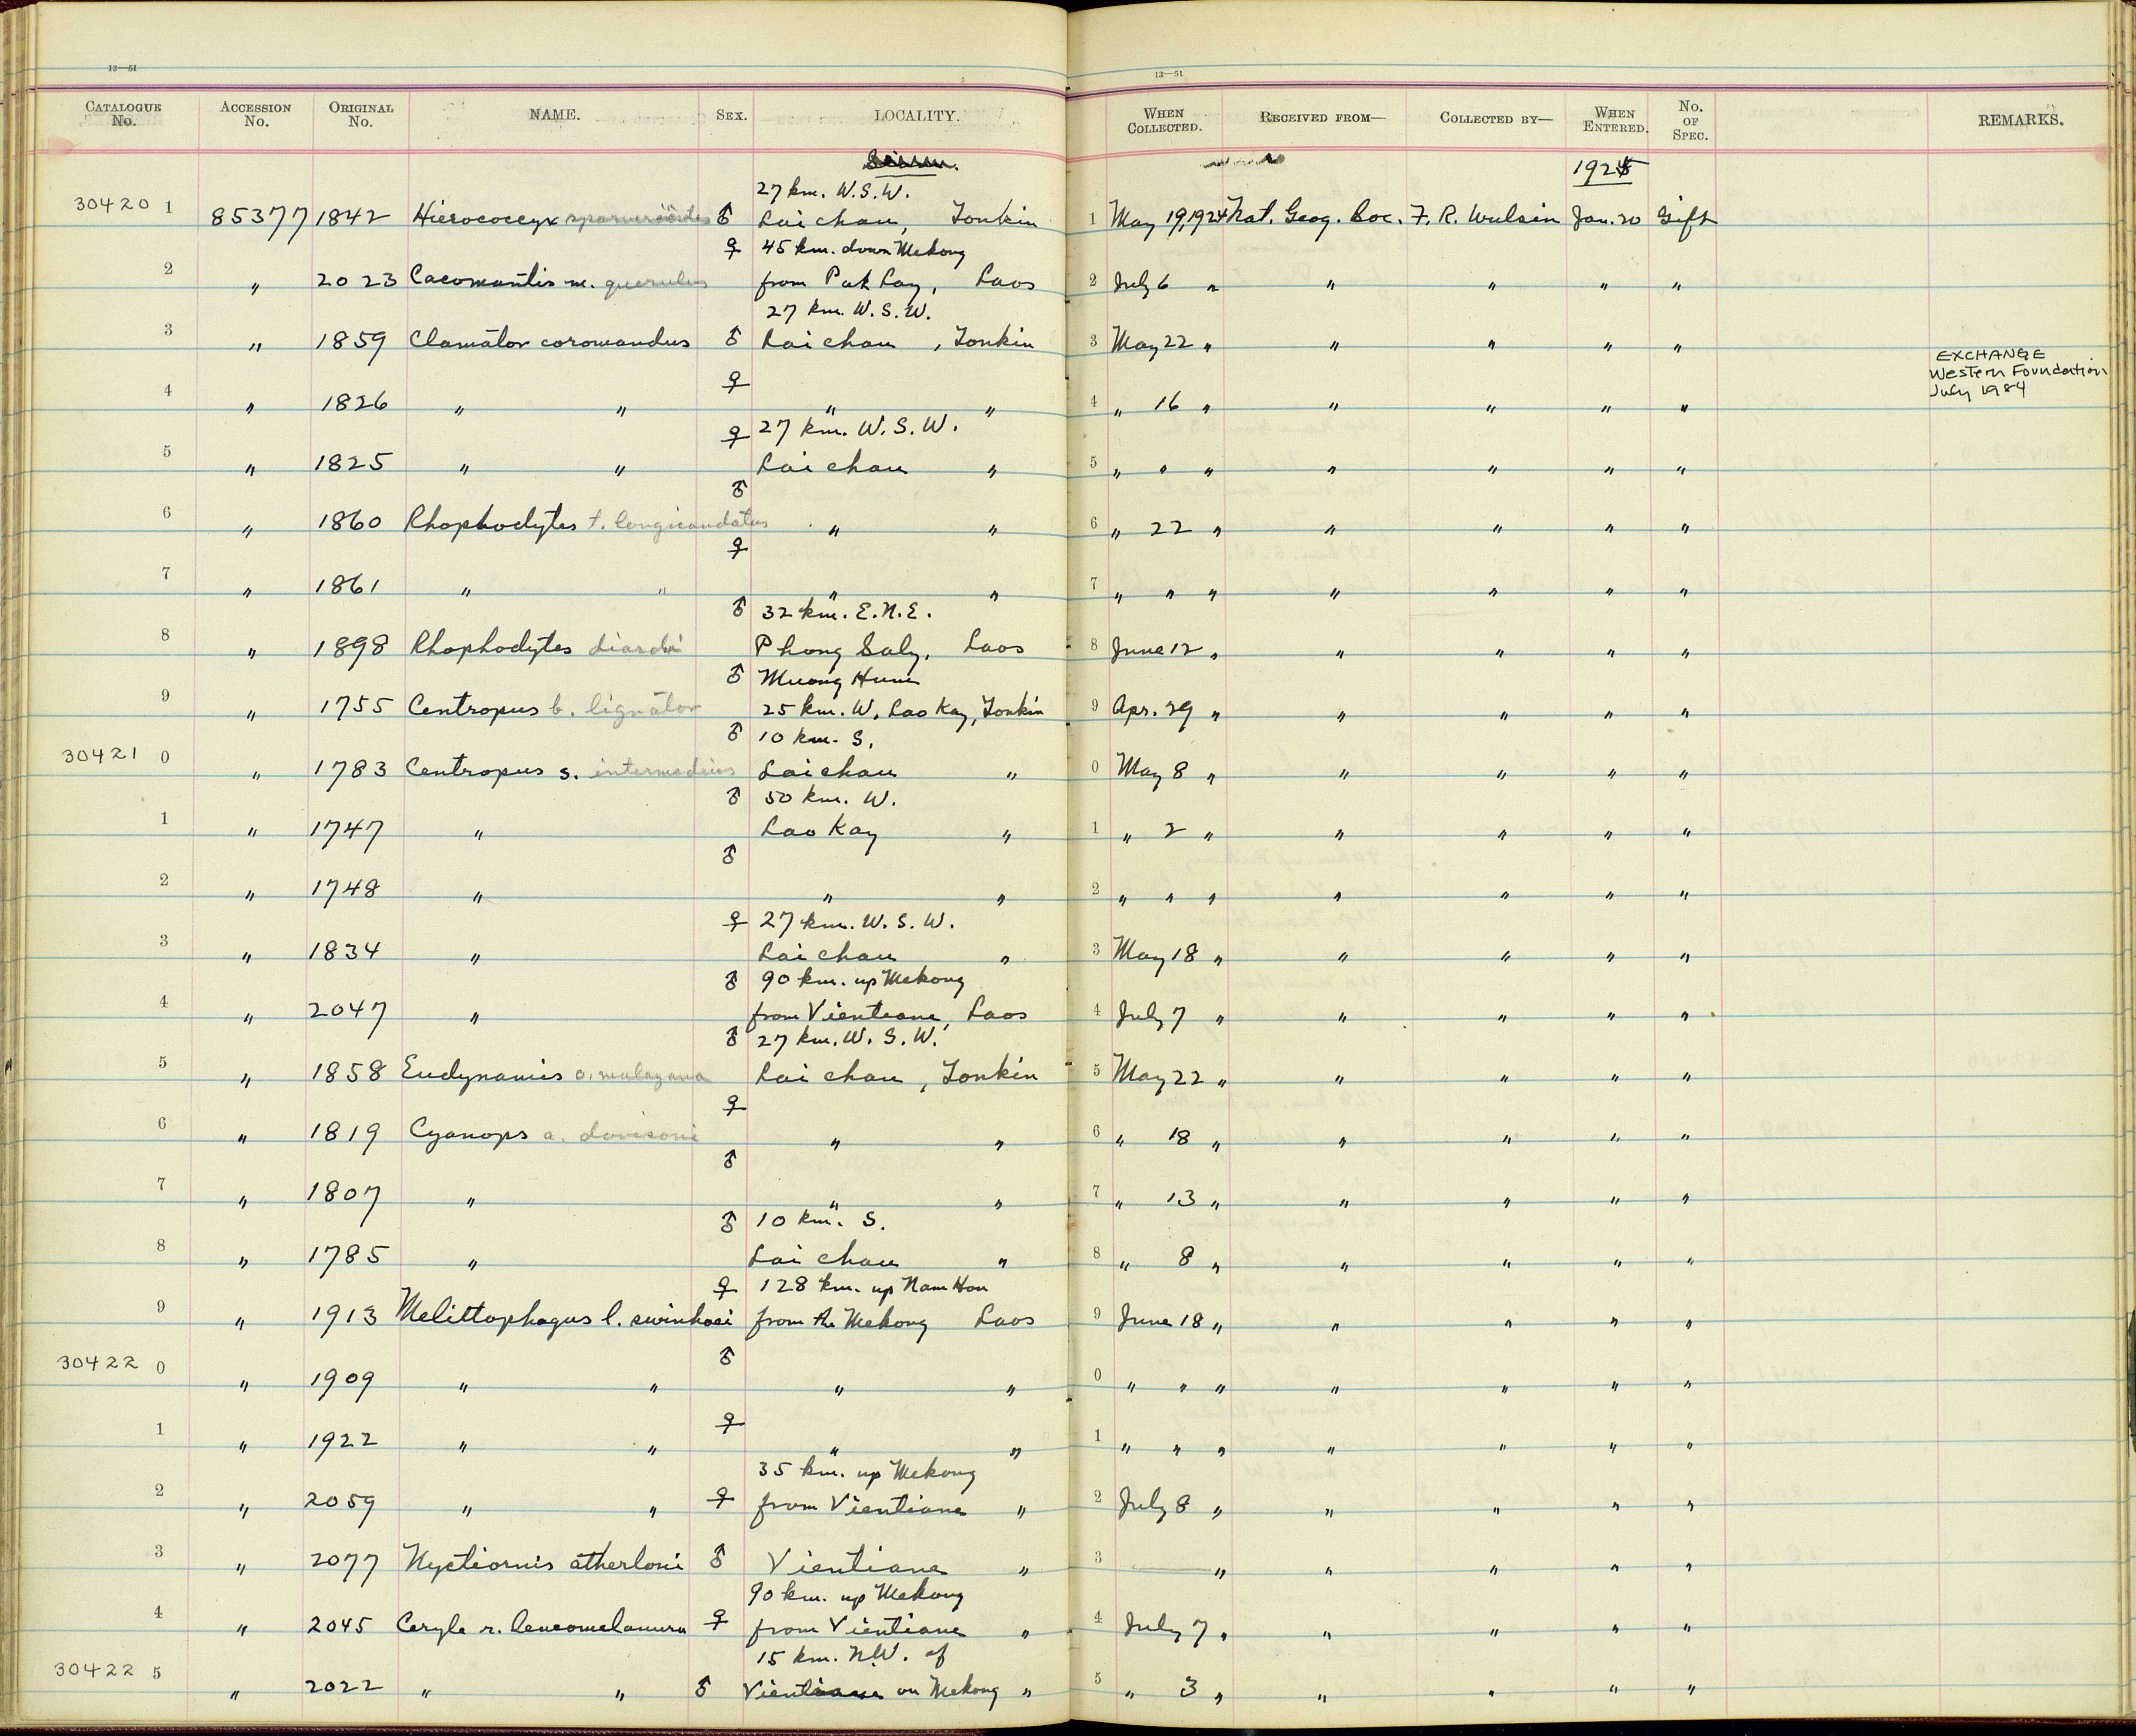 13—51
13—51
CATALOGUE No. ACCESSION No. ORIGINAL No. NAME. SEX. LOCALITY. WHEN COLLECTED. RECEIVED FROM— COLLECTED BY— WHEN ENTERED. No. OF SPEC. REMARKS.
1925
27 km. W.S.W.
30420 1 85377 1842 Hierococcyx sparverioides ♂ Lai chau, Tonkin 1 May 19, 1924 Nat. Geog. Soc. F. R. Wulsin Jan. 20 Gift
♀ 45 km. down Mekong
2 " 2023 Cacomantis m. querulus from Pak Lay, Laos 2 July 6 " " " " "
27 km. W.S.W.
3 " 1859 Clamator coromandus ♂ Lai chau, Tonkin 3 May 22 " " " " "
EXCHANGE
Western Foundation
July 1984
♀
4 " 1826 " " " " 4 " 16 " " " " "
♀ 27 km. W.S.W.
5 " 1825 " " Lai chau " 5 " " " " " " "
♂
6 " 1860 Rhophodytes t. longicaudatus " " 6 " 22 " " " " "
♀
7 " 1861 " " " " 7 " " " " " " "
♂ 32 km. E.N.E.
8 " 1898 Rhophodytes diardi Phong Saly, Laos 8 June 12 " " " " "
♂ Muong Hum
9 " 1755 Centropus b. lignator 25 km. W. Lao Kay, Tonkin 9 Apr. 29 " " " " "
♂ 10 km. S.
30421 0 " 1783 Centropus s. intermedius Lai chau " 0 May 8 " " " " "
♂ 50 km. W.
1 " 1747 " Lao Kay " 1 " 2 " " " " "
♂
2 " 1748 " " " 2 " " " " " " "
♀ 27 km. W.S.W.
3 " 1834 " Lai chau " 3 May 18 " " " " "
♂ 90 km. up Mekong
4 " 2047 " from Vientiane, Laos 4 July 7 " " " " "
♂ 27 km. W.S.W.
5 " 1858 Eudynamis o. malayana Lai chau, Tonkin 5 May 22 " " " " "
♀
6 " 1819 Cyanops a. davisoni " " 6 " 18 " " " " "
♂
7 " 1807 " " " 7 " 13 " " " " "
♂ 10 km. S.
8 " 1785 " Lai chau " 8 " 8 " " " " "
♀ 128 km. up Nam Hou
9 " 1913 Melittophagus l. swinhoei from the Mekong Laos 9 June 18 " " " " "
♂
30422 0 " 1909 " " " " 0 " " " " " " "
♀
1 " 1922 " " " " 1 " " " " " " "
35 km. up Mekong
2 " 2059 " " ♀ from Vientiane " 2 July 8 " " " " "
3 " 2077 Nyctiornis athertoni ♂ Vientiane " 3 " " " " "
90 km. up Mekong
4 " 2045 Ceryle r. leucomelanura ♀ from Vientiane " 4 July 7 " " " " "
15 km. N.W. of
30422 5 " 2022 " " ♂ Vientiane on Mekong " 5 " 3 " " " " "